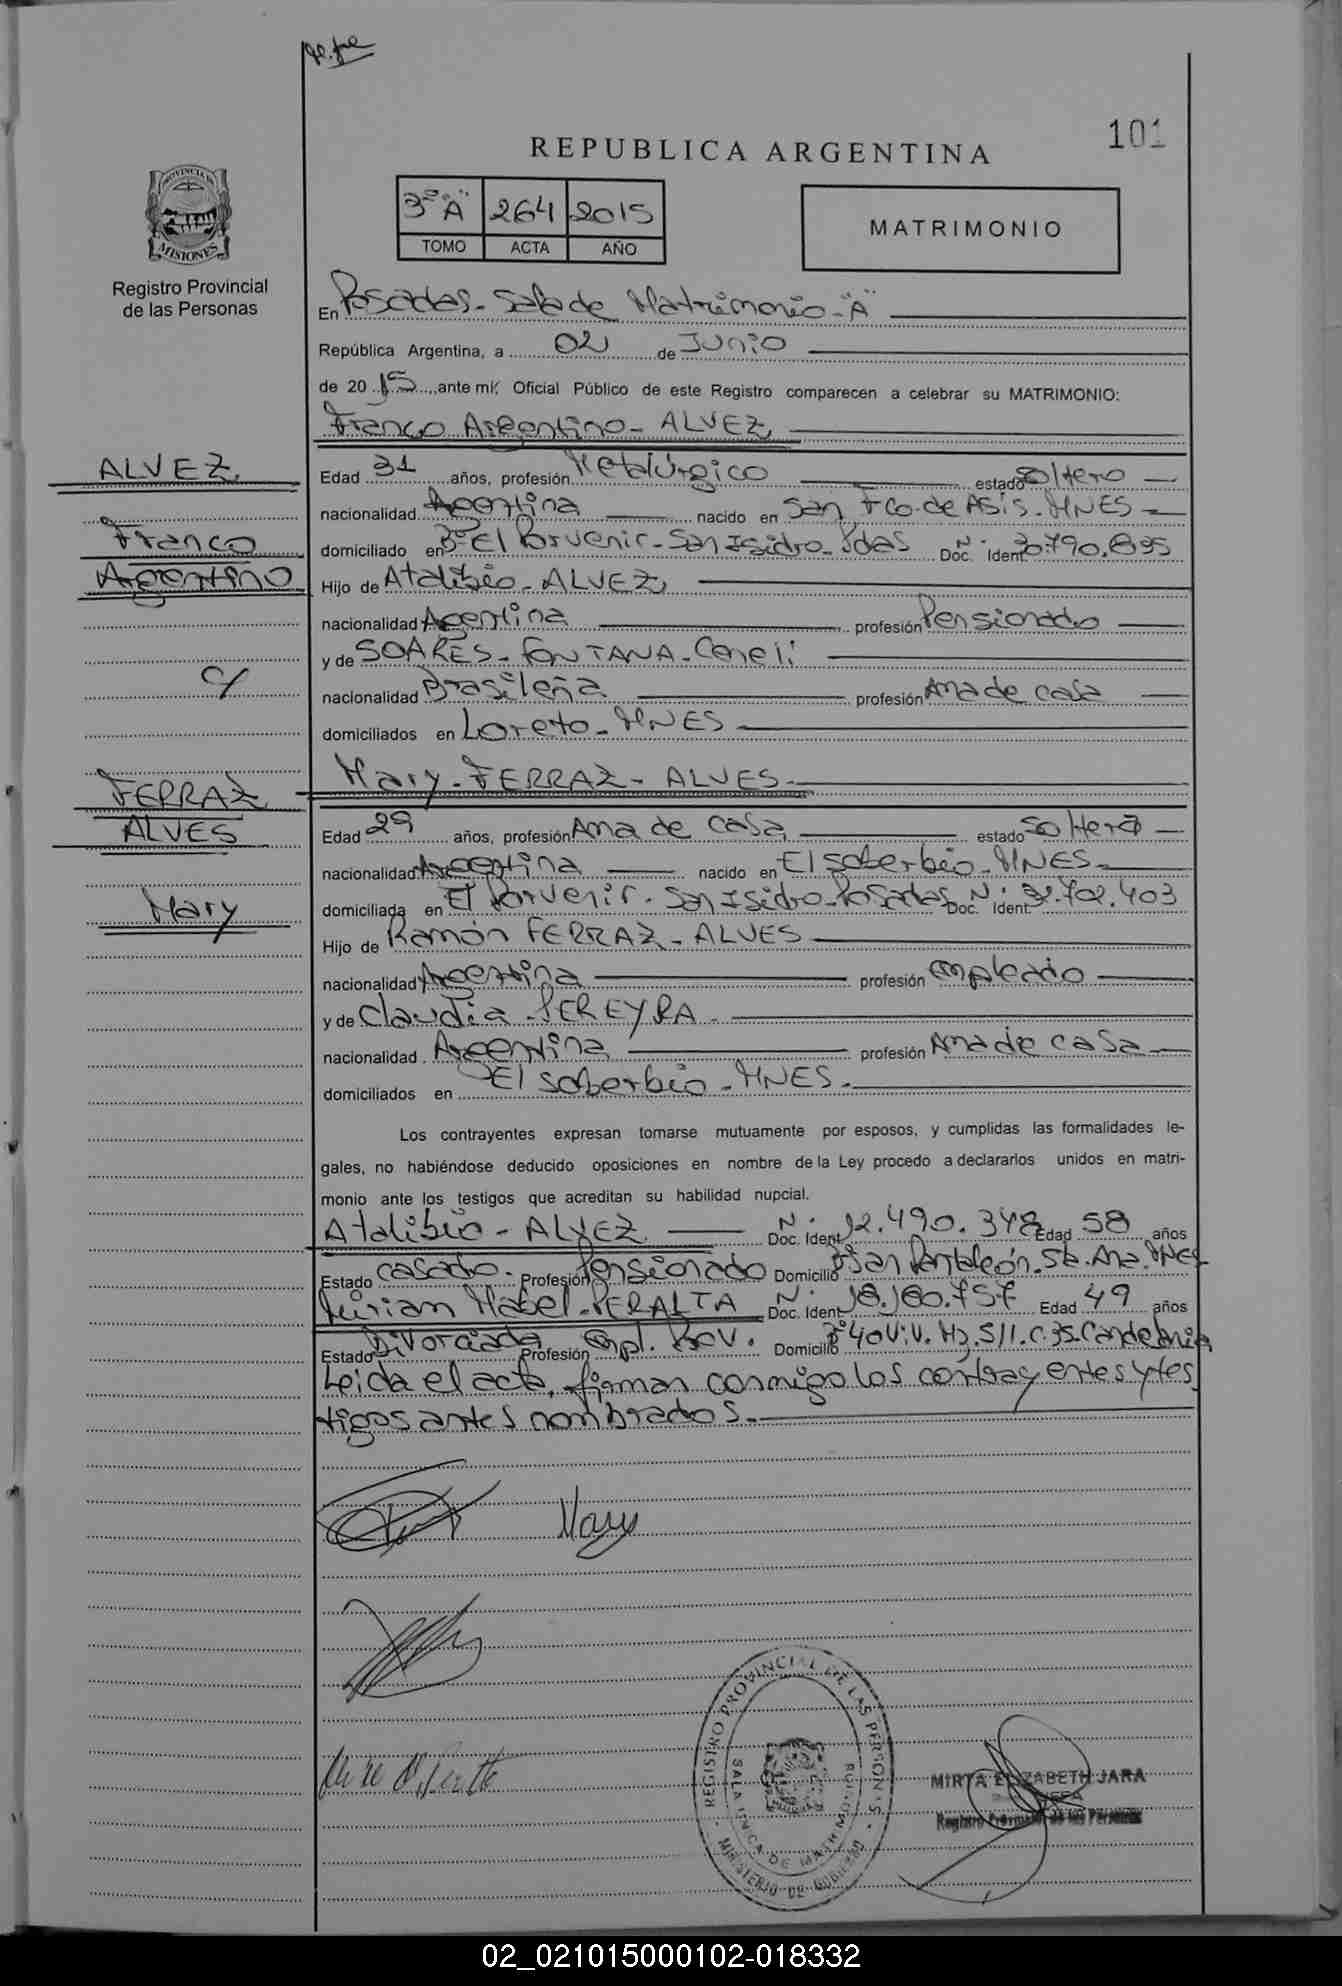 101
REPUBLICA ARGENTINA
3º "A" 264 2015
TOMO ACTA AÑO
MATRIMONIO
PROVINCIA DE MISIONES
Registro Provincial
de las Personas
En Posadas - Sala de Matrimonio - "A"
República Argentina, a 02 de Junio
de 2015, ante mí, Oficial Público de este Registro comparecen a celebrar su MATRIMONIO:
Franco Argentino - ALVEZ
ALVEZ
Franco
Argentino
c/
FERRAZ
ALVES
Mary
Edad 31 años, profesión Metalúrgico estado Soltero
nacionalidad Argentina nacido en San Fco. de Asis. MNES
domiciliado en Bº El Porvenir - San Isidro - Pdas Doc. Ident. Nº 30.790.895
Hijo de Atalibio - ALVEZ
nacionalidad Argentina profesión Pensionado
y de SOARES - FONTANA - Coneli
nacionalidad Brasileña profesión Ama de casa
domiciliados en Loreto - MNES
Mary - FERRAZ - ALVES
Edad 29 años, profesión Ama de casa estado Soltera
nacionalidad Argentina nacido en El Soberbio - MNES
domiciliada en El Porvenir - San Isidro - Posadas Doc. Ident. Nº 32.702.403
Hijo de Ramón FERRAZ - ALVES
nacionalidad Argentina profesión empleado
y de Claudia - PEREYRA
nacionalidad Argentina profesión Ama de casa
domiciliados en El Soberbio - MNES.
Los contrayentes expresan tomarse mutuamente por esposos, y cumplidas las formalidades le-
gales, no habiéndose deducido oposiciones en nombre de la Ley procedo a declararlos unidos en matri-
monio ante los testigos que acreditan su habilidad nupcial.
Atalibio - ALVEZ Doc. Ident. Nº 12.490.348 Edad 58 años
Estado casado. Profesión Pensionado Domicilio Bº San Pantaleón. Sta. Ana. MNES
Mirian Mabel - PERALTA Doc. Ident. Nº 18.180.757 Edad 49 años
Estado Divorciada Profesión Empl. Domicilio Bº 40 Viv. Mz. S/1. C. 35. Candelaria
Leida el acta, firman conmigo los contrayentes y tes
tigos antes nombrados.
Mary
REGISTRO PROVINCIAL DE LAS PERSONAS
SALA UNICA DE MATRIMONIOS
MINISTERIO DE GOBIERNO
MIRTA ELIZABETH JARA
JEFA
Registro Provincial de las Personas
02_021015000102-018332